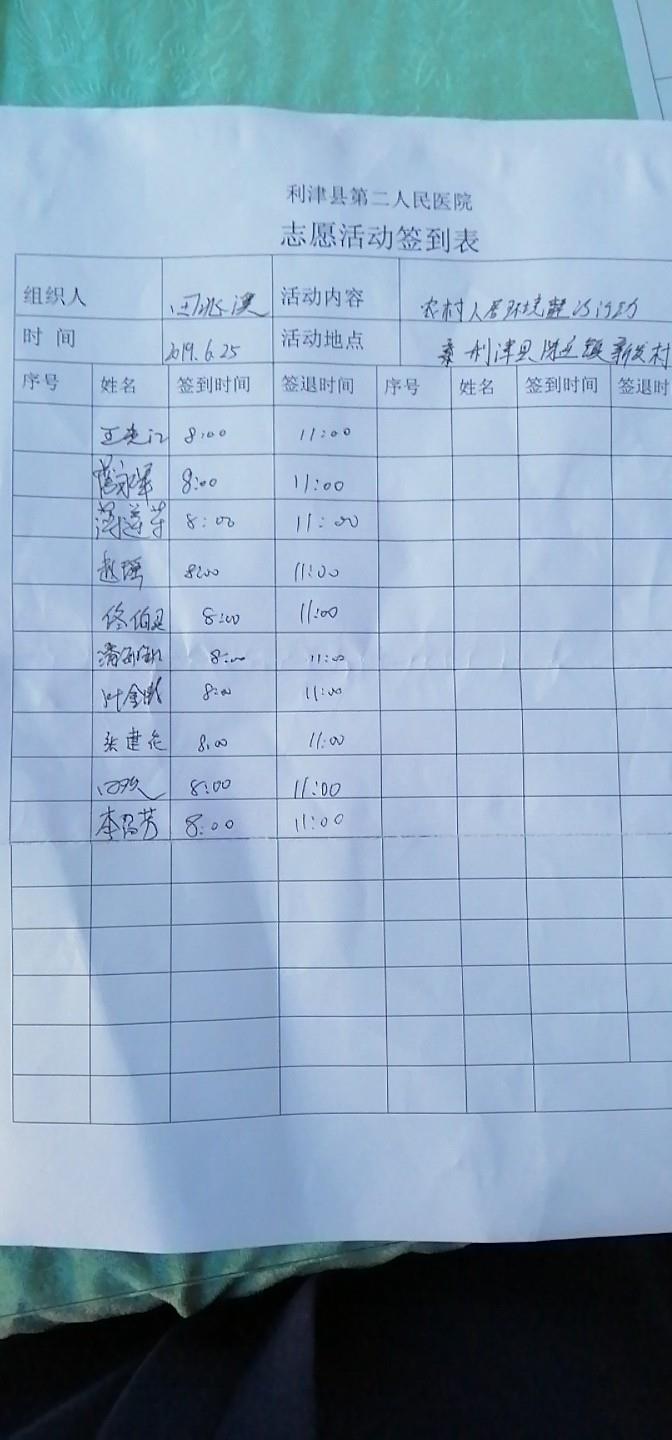 利津县第二人民医院
志愿活动签到表
组织人 活动内容 农村人居环境整治活动
时 间 2019.6.25 活动地点 利津县陈庄镇新发村
序号 姓名 签到时间 签退时间 序号 姓名 签到时间 签退时
8:00 11:00
8:00 11:00
8:00 11:00
赵强 8:00 11:00
8:00 11:00
8:00 11:00
叶金彬 8:00 11:00
张建花 8:00 11:00
8:00 11:00
8:00 11:00